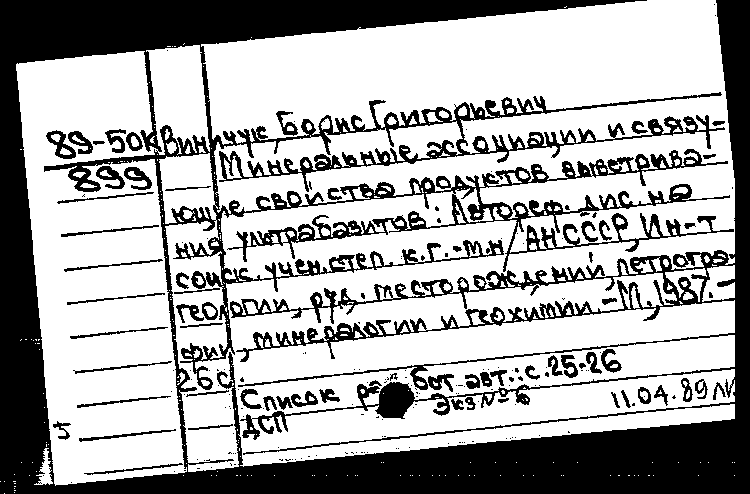 89-50к Виничук Борис Григорьевич
899 Минеральные ассоциации и связу-
ющие свойства продуктов выветрива-
ния ультрабазитов: Автореф. дис. на
соиск. учен. степ. к.г.-м.н / АН СССР, Ин-т
геологии, руд. месторождений, петрогра-
фии, минералогии и геохимии. - М., 1987. -
26 с.
Список работ авт.: с. 25-26
ДСП Экз № 6 11.04.89